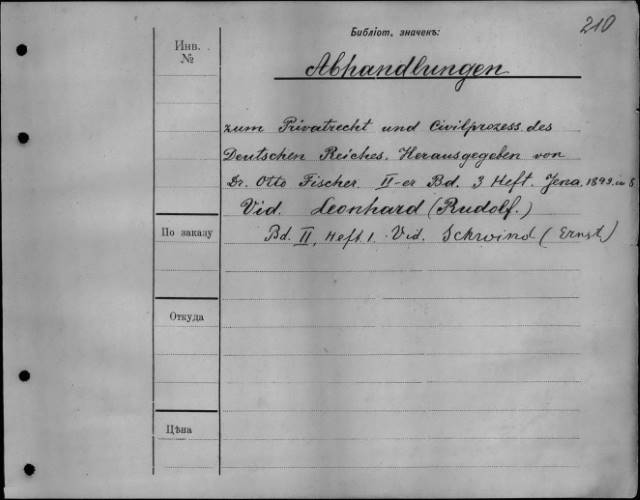 210
Библіот. значекъ:
Инв.
№
Abhandlungen
zum Privatrecht und Civilprozess des
Deutschen Reiches. Herausgegeben von
Dr. Otto Fischer II-er Bd. 3 Heft. Jena. 1899. in 8
Vid. Leonhard (Rudolf.)
По заказу
Bd. II, Heft 1. Vid. Schwind (Ernst)
Откуда
Цѣна